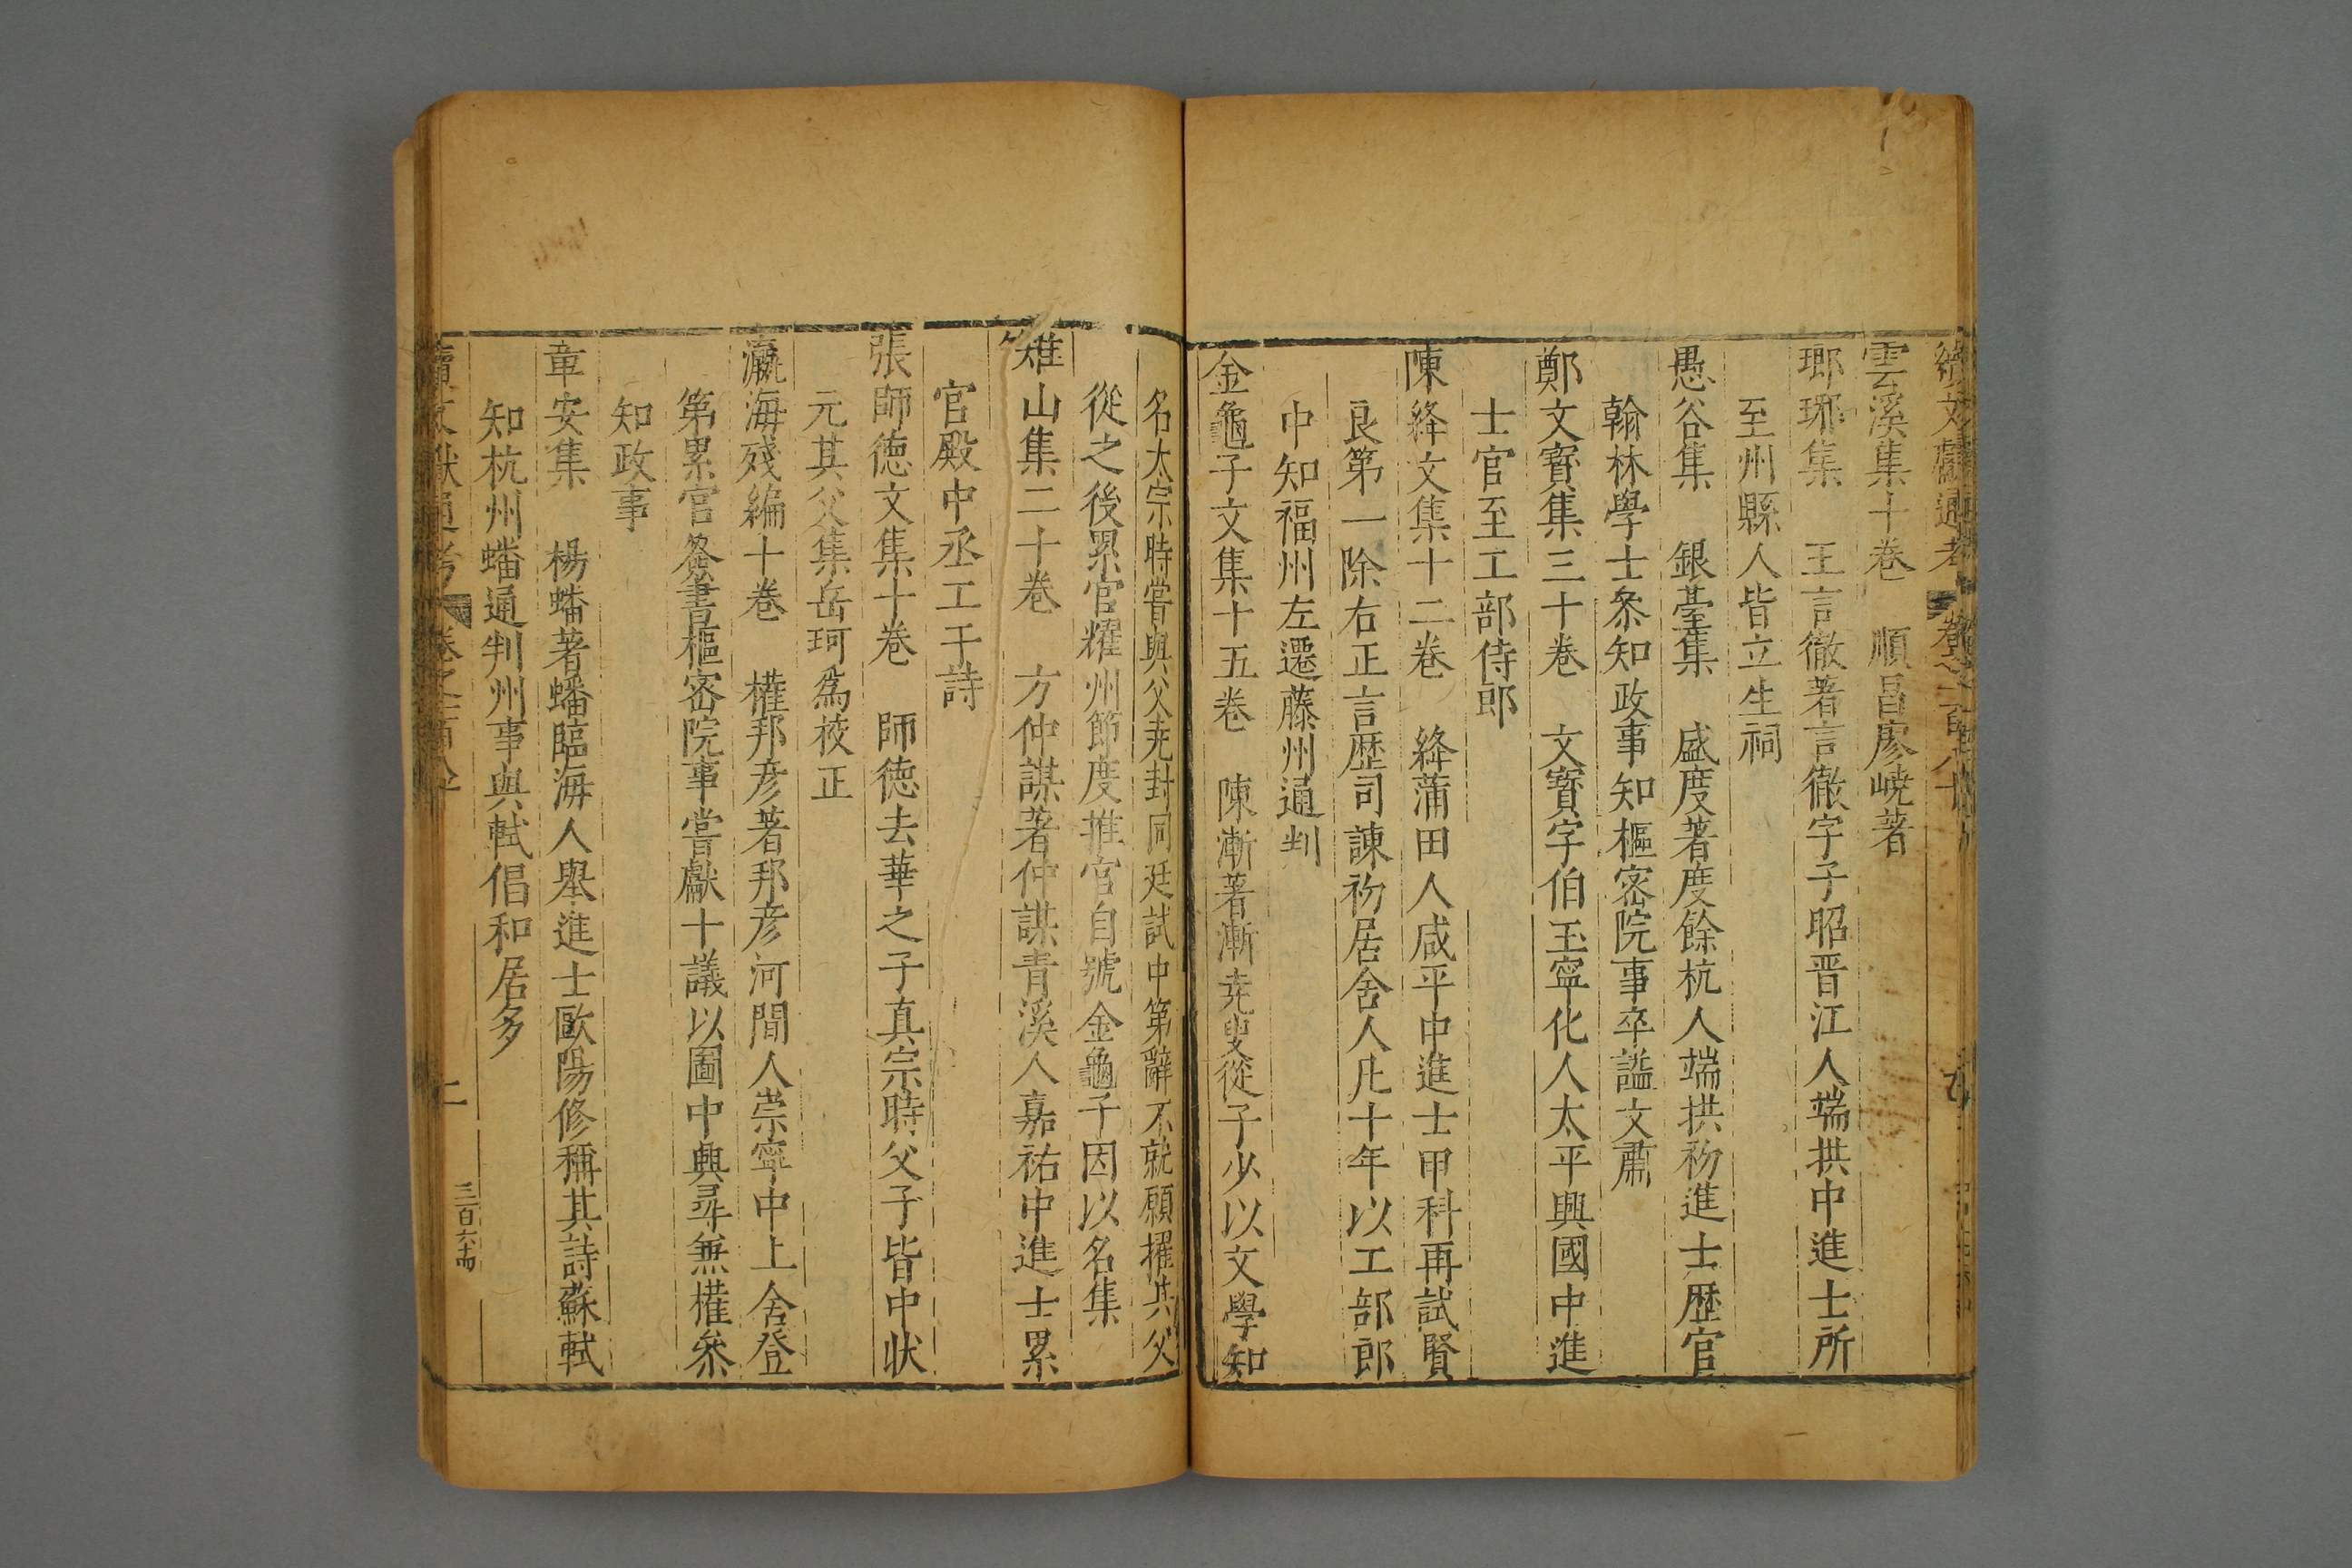 續文獻通考 卷之一百八十
雲溪集十卷 順昌廖嶢著
瑯琊集 王言徹著言徹字子昭晋江人端拱中進士所
至州縣人皆立生祠
愚谷集 銀臺集 盛度著度餘杭人端拱初進士歷官
翰林學士叅知政事知樞密院事卒謚文肅
鄭文寶集三十卷 文寶字伯玉寧化人太平興國中進
士官至工部侍郎
陳絳文集十二卷 絳蒲田人咸平中進士甲科再試賢
良第一除右正言歷司諫初居舍人凡十年以工部郎
中知福州左遷藤州通判
金龜子文集十五卷 陳漸著漸尭叟從子少以文學知
名太宗時嘗與父尭封同廷試中第辭不就願擢其父
從之後累官耀州節度推官自號金龜子因以名集
雉山集二十卷 方仲謀著仲謀青溪人嘉祐中進士累
官殿中丞工于詩
張師德文集十卷 師德去華之子真宗時父子皆中状
元其父集岳珂為校正
瀛海殘編十卷 權邦彦著邦彦河間人崇寧中上舍登
第累官簽書樞密院事嘗獻十議以圖中興尋兼權叅
知政事
章安集 楊蟠著蟠臨海人舉進士歐陽修稱其詩蘇軾
知杭州蟠通判州事與軾倡和居多
續文獻通考 卷之一百八十